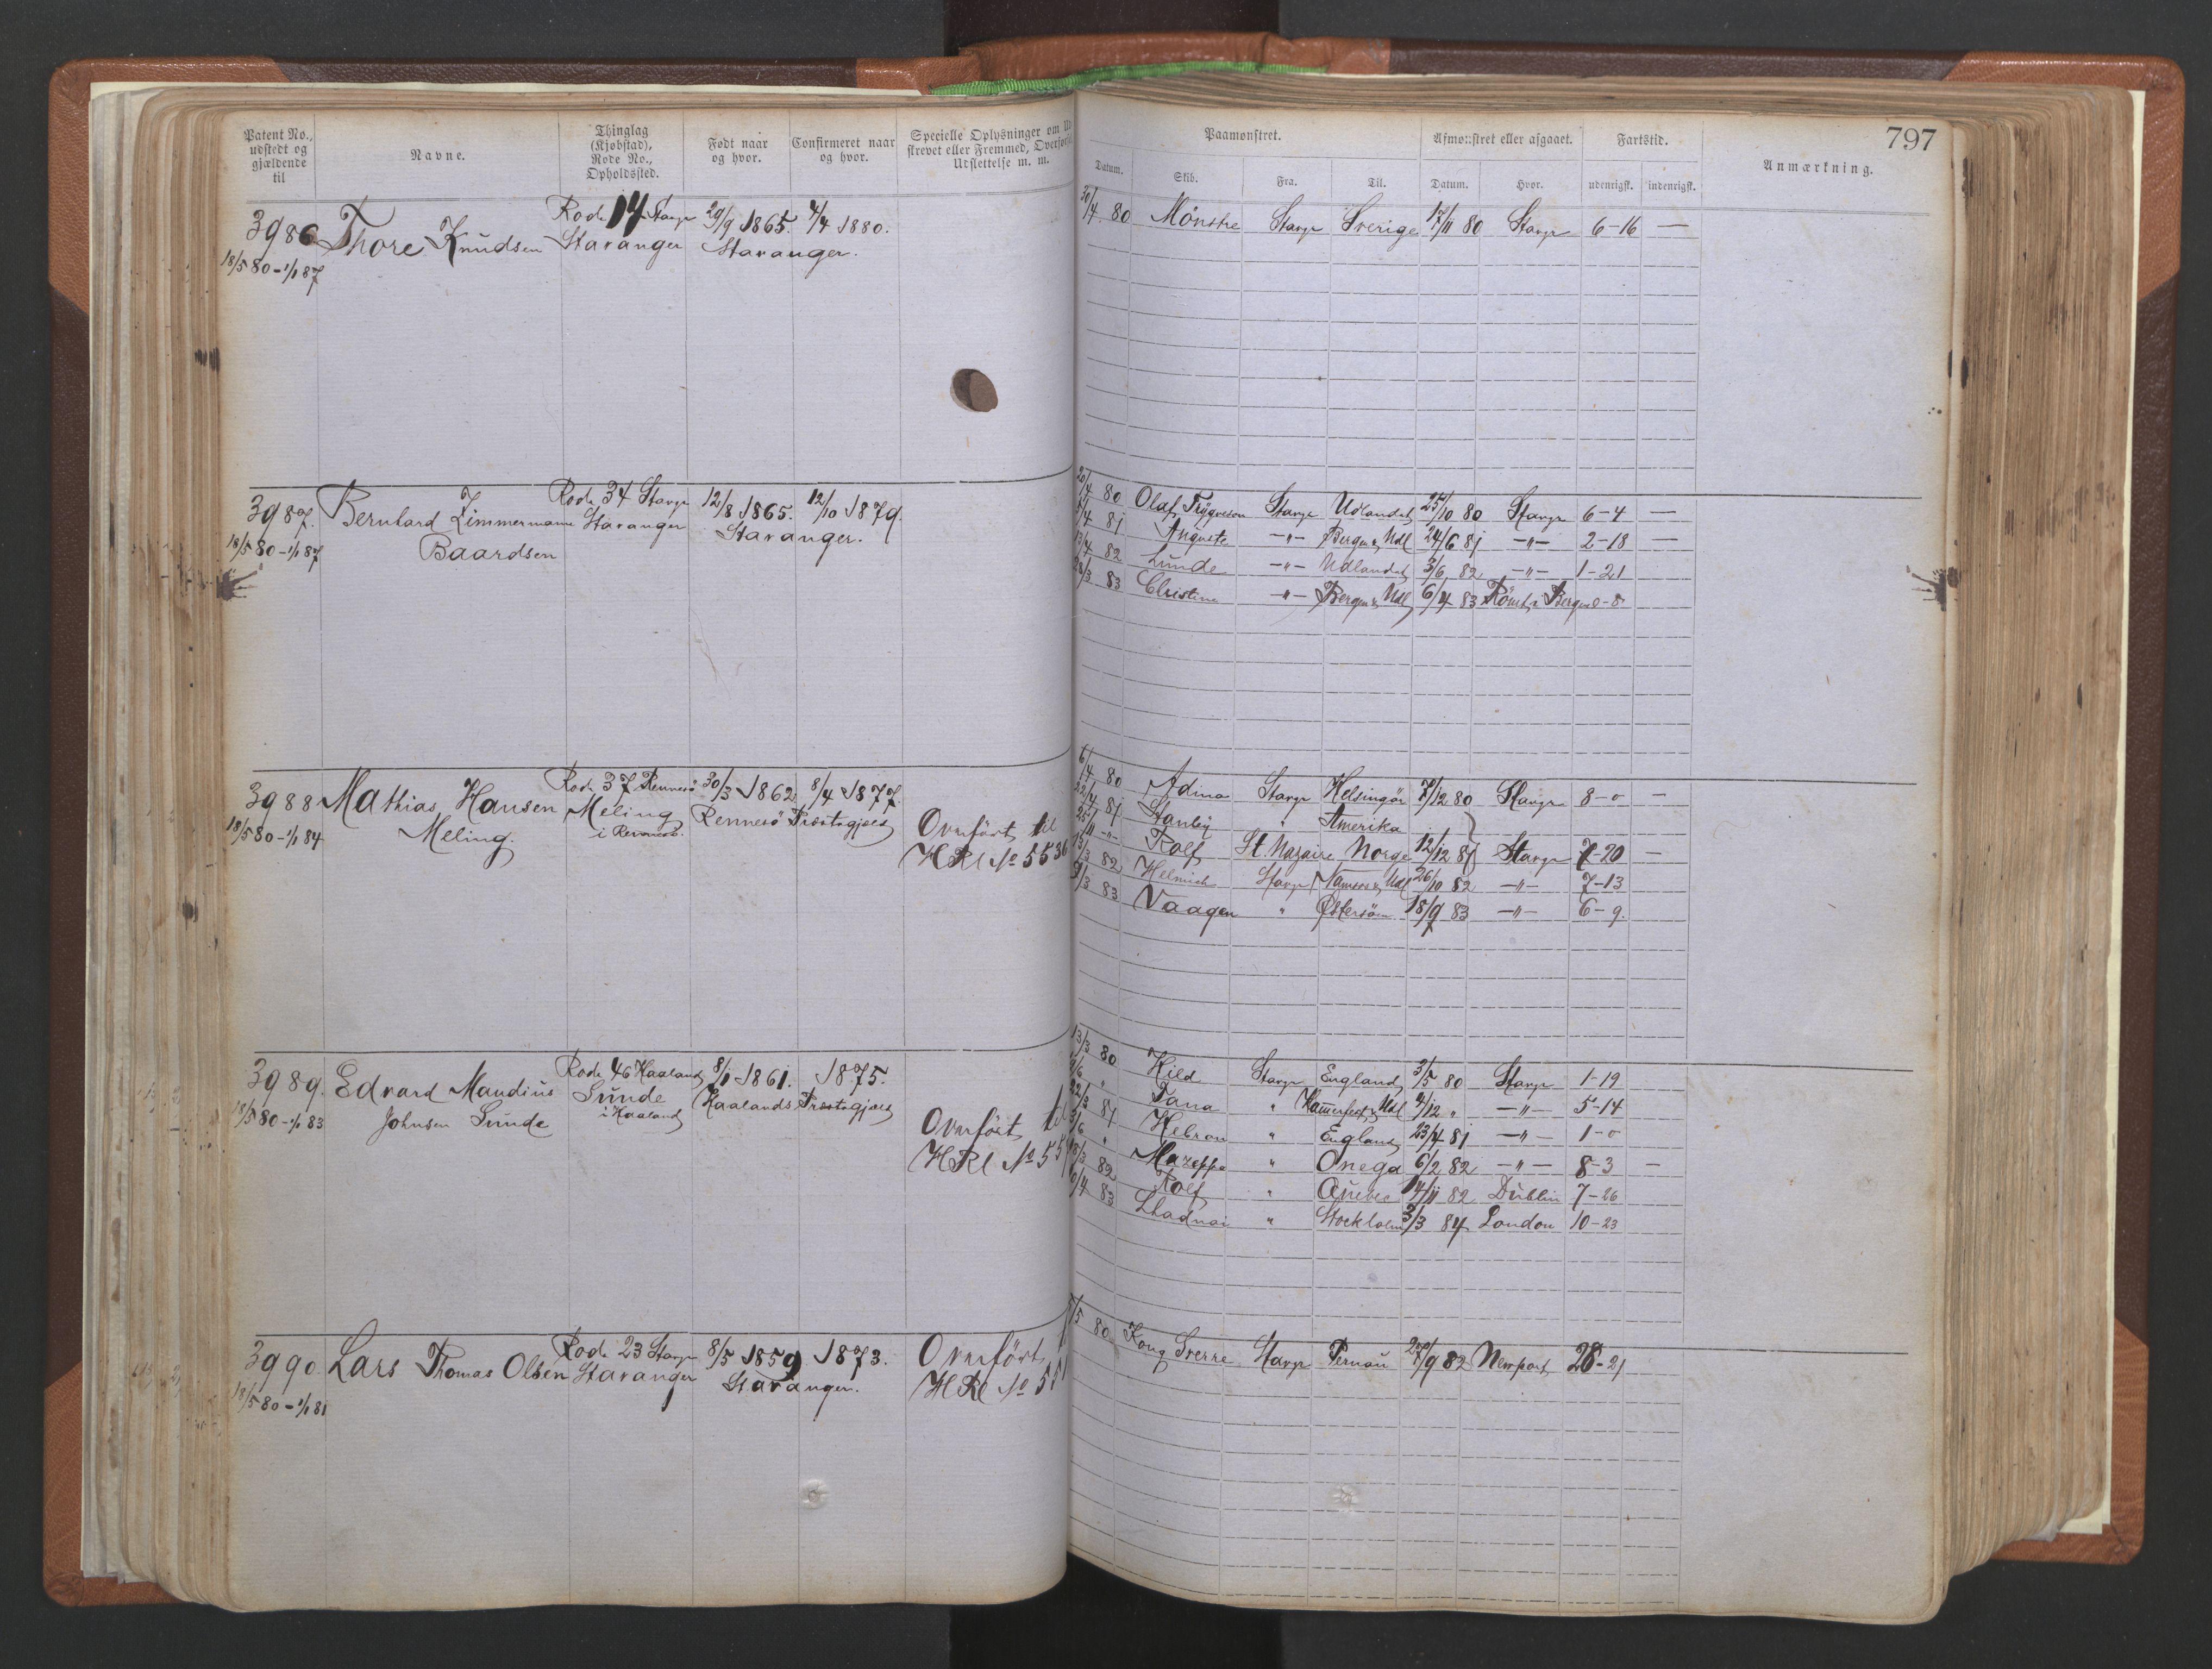 797
Patent No., udstedt og gjældende til
Navne.
Thinglag (Kjøbstad), Rode No., Opholdssted.
Født naar og hvor.
Confirmeret naar og hvor.
Specielle Oplysninger om
strevet eller Fremmed, Overført
Udslettelse m. m.
Paamønstret.
Afmønstret eller afgaaet.
Fartstid.
Anmærkning.
Datum. Skib. Fra. Til. Datum. Hvor. udenrigsk. indenrigsk.
3986 Thore Knudsen Rode 14 Stavgr 29/9 1865. 4/4 1880.
Stavanger Stavanger.
18/5 80 - 1/1 87
20/4 80 Mönstre Stavgr Sverige 17/11 80 Stavgr 6-16 —
3987. Bernhard Zimmermann Rode 34 Stavgr 12/8 1865. 12/10 1879.
Baardsen Stavanger Stavanger.
18/5 80 - 1/1 87
20/4 80 Olaf Trÿgveson Stavgr Udlandet 25/10 80 Stavgr 6-4 —
/4 81 Auguste -"- Bergen & Udl 24/6 81 -"- 2-18 —
13/4 82 Lunde -"- Udlandet 3/6 82 -"- 1-21
28/3 83 Christine -"- Bergen & Udl 6/4 83 Römt i Bergen 0-8
3988 Mathias Hansen Rode 37 Rennesö 30/3 1862 8/4 1877.
Meling. Meling i Rennesö. Rennesö Præstegjæld
18/5 80 - 1/1 84
Overført til
HRl No 5536
6/4 80 Adma Stavgr Helsingör 7/12 80 Stavgr 8-0 —
22/4 81 Stanley " Amerika
25/11 -"- Rolf St. Nazaire Norge 12/12 81 Stavgr 7-20 —
/3 82 Helmich Stavgr Namsos & Udl 26/10 82 -"- 7-13
/3 83 Vaagen " Østersöen 18/9 83 -"- 6-9.
3989. Edvard Maudius Rode 46 Haaland 8/1 1861. 1875.
Johnsen Sunde Sunde i Haaland Haalands Præstegjæld
18/5 80 - 1/1 83
Overført til
HRl No 55
13/3 80 Hild Stavgr England 3/5 80 Stavgr 1-19
/6 " Tana " Hammerfest & Udl 4/12 " -"- 5-14
22/3 81 Hebron " England 23/4 81 -"- 1-0
5/6 " Mazeppa " Onega 6/2 82 -"- 8-3 —
/3 82 Rolf " Quebec 14/11 82 Dublin 7-26
10/4 83 Lhadnai " Stockholm 3/3 84 London 10-23
3990 Lars Thomas Olsen Rode 23 Stavgr 8/5 1859 1873.
Stavanger Stavanger.
18/5 80 - 1/1 81
Overført
HRl No 55
/5 80 Kong Sverre Stavgr Pernau 27/9 82 Newport 28-21